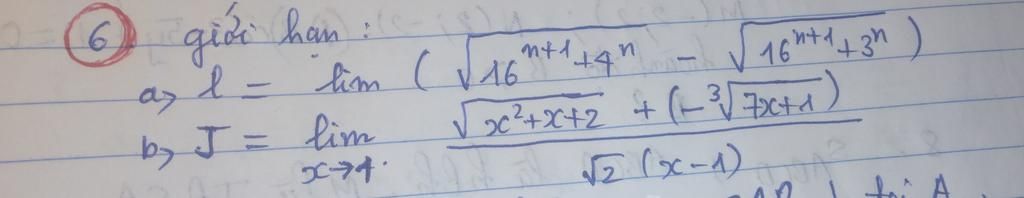 6 giới hạn :
a, l = lim ( √(16^(n+1) + 4^n) - √(16^(n+1) + 3^n) )
b, J = lim x→1 (√(x²+x+2) + (-³√(7x+1))) / (√2 (x-1))